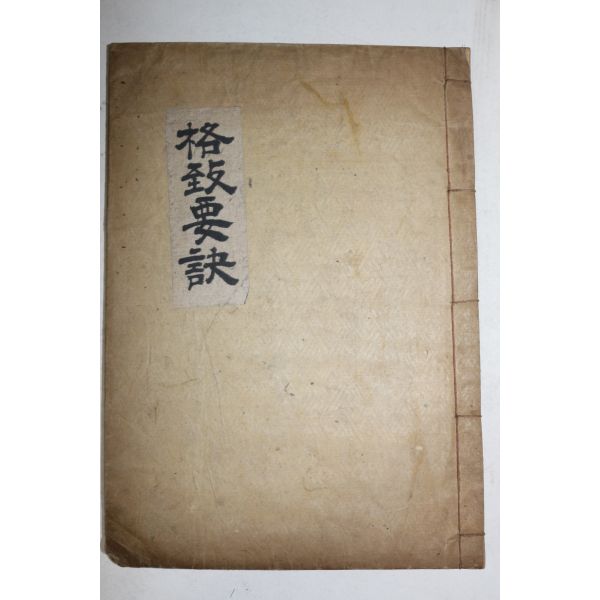 格致要訣